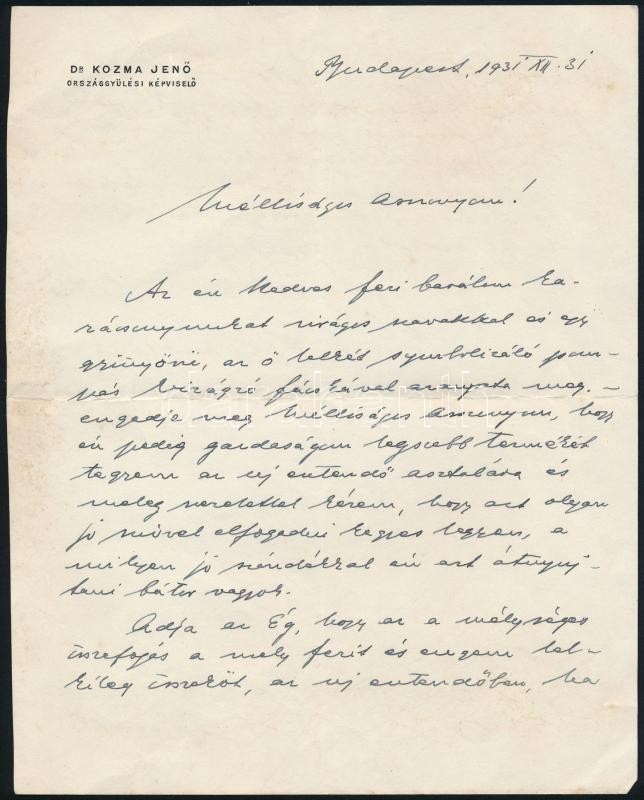 DR KOZMA JENŐ
ORSZÁGGYÜLÉSI KÉPVISELŐ
Budapest, 1931 XII. 31
Méltóságos Asszonyom!
Az én kedves feri barátom ka-
rácsonyunkat virágos szavakkal és egy
gyönyörű, az ő lelkét symbolizáló pom-
pás virágzó fácskával aranyozta meg. -
engedje meg Méltóságos Asszonyom, hogy
én pedig gazdaságom legszebb termékét
tegyem az uj esztendő asztalára és
meleg szeretettel kérem, hogy azt olyan
jó szívvel elfogadni kegyes legyen, a
milyen jó szándékkal én azt átnyuj-
tani bátor vagyok.
Adja az Ég, hogy az a mélységes
összefogás a mely ferit és engem lel-
kileg összeköt, az uj esztendőben, ha
darabanth